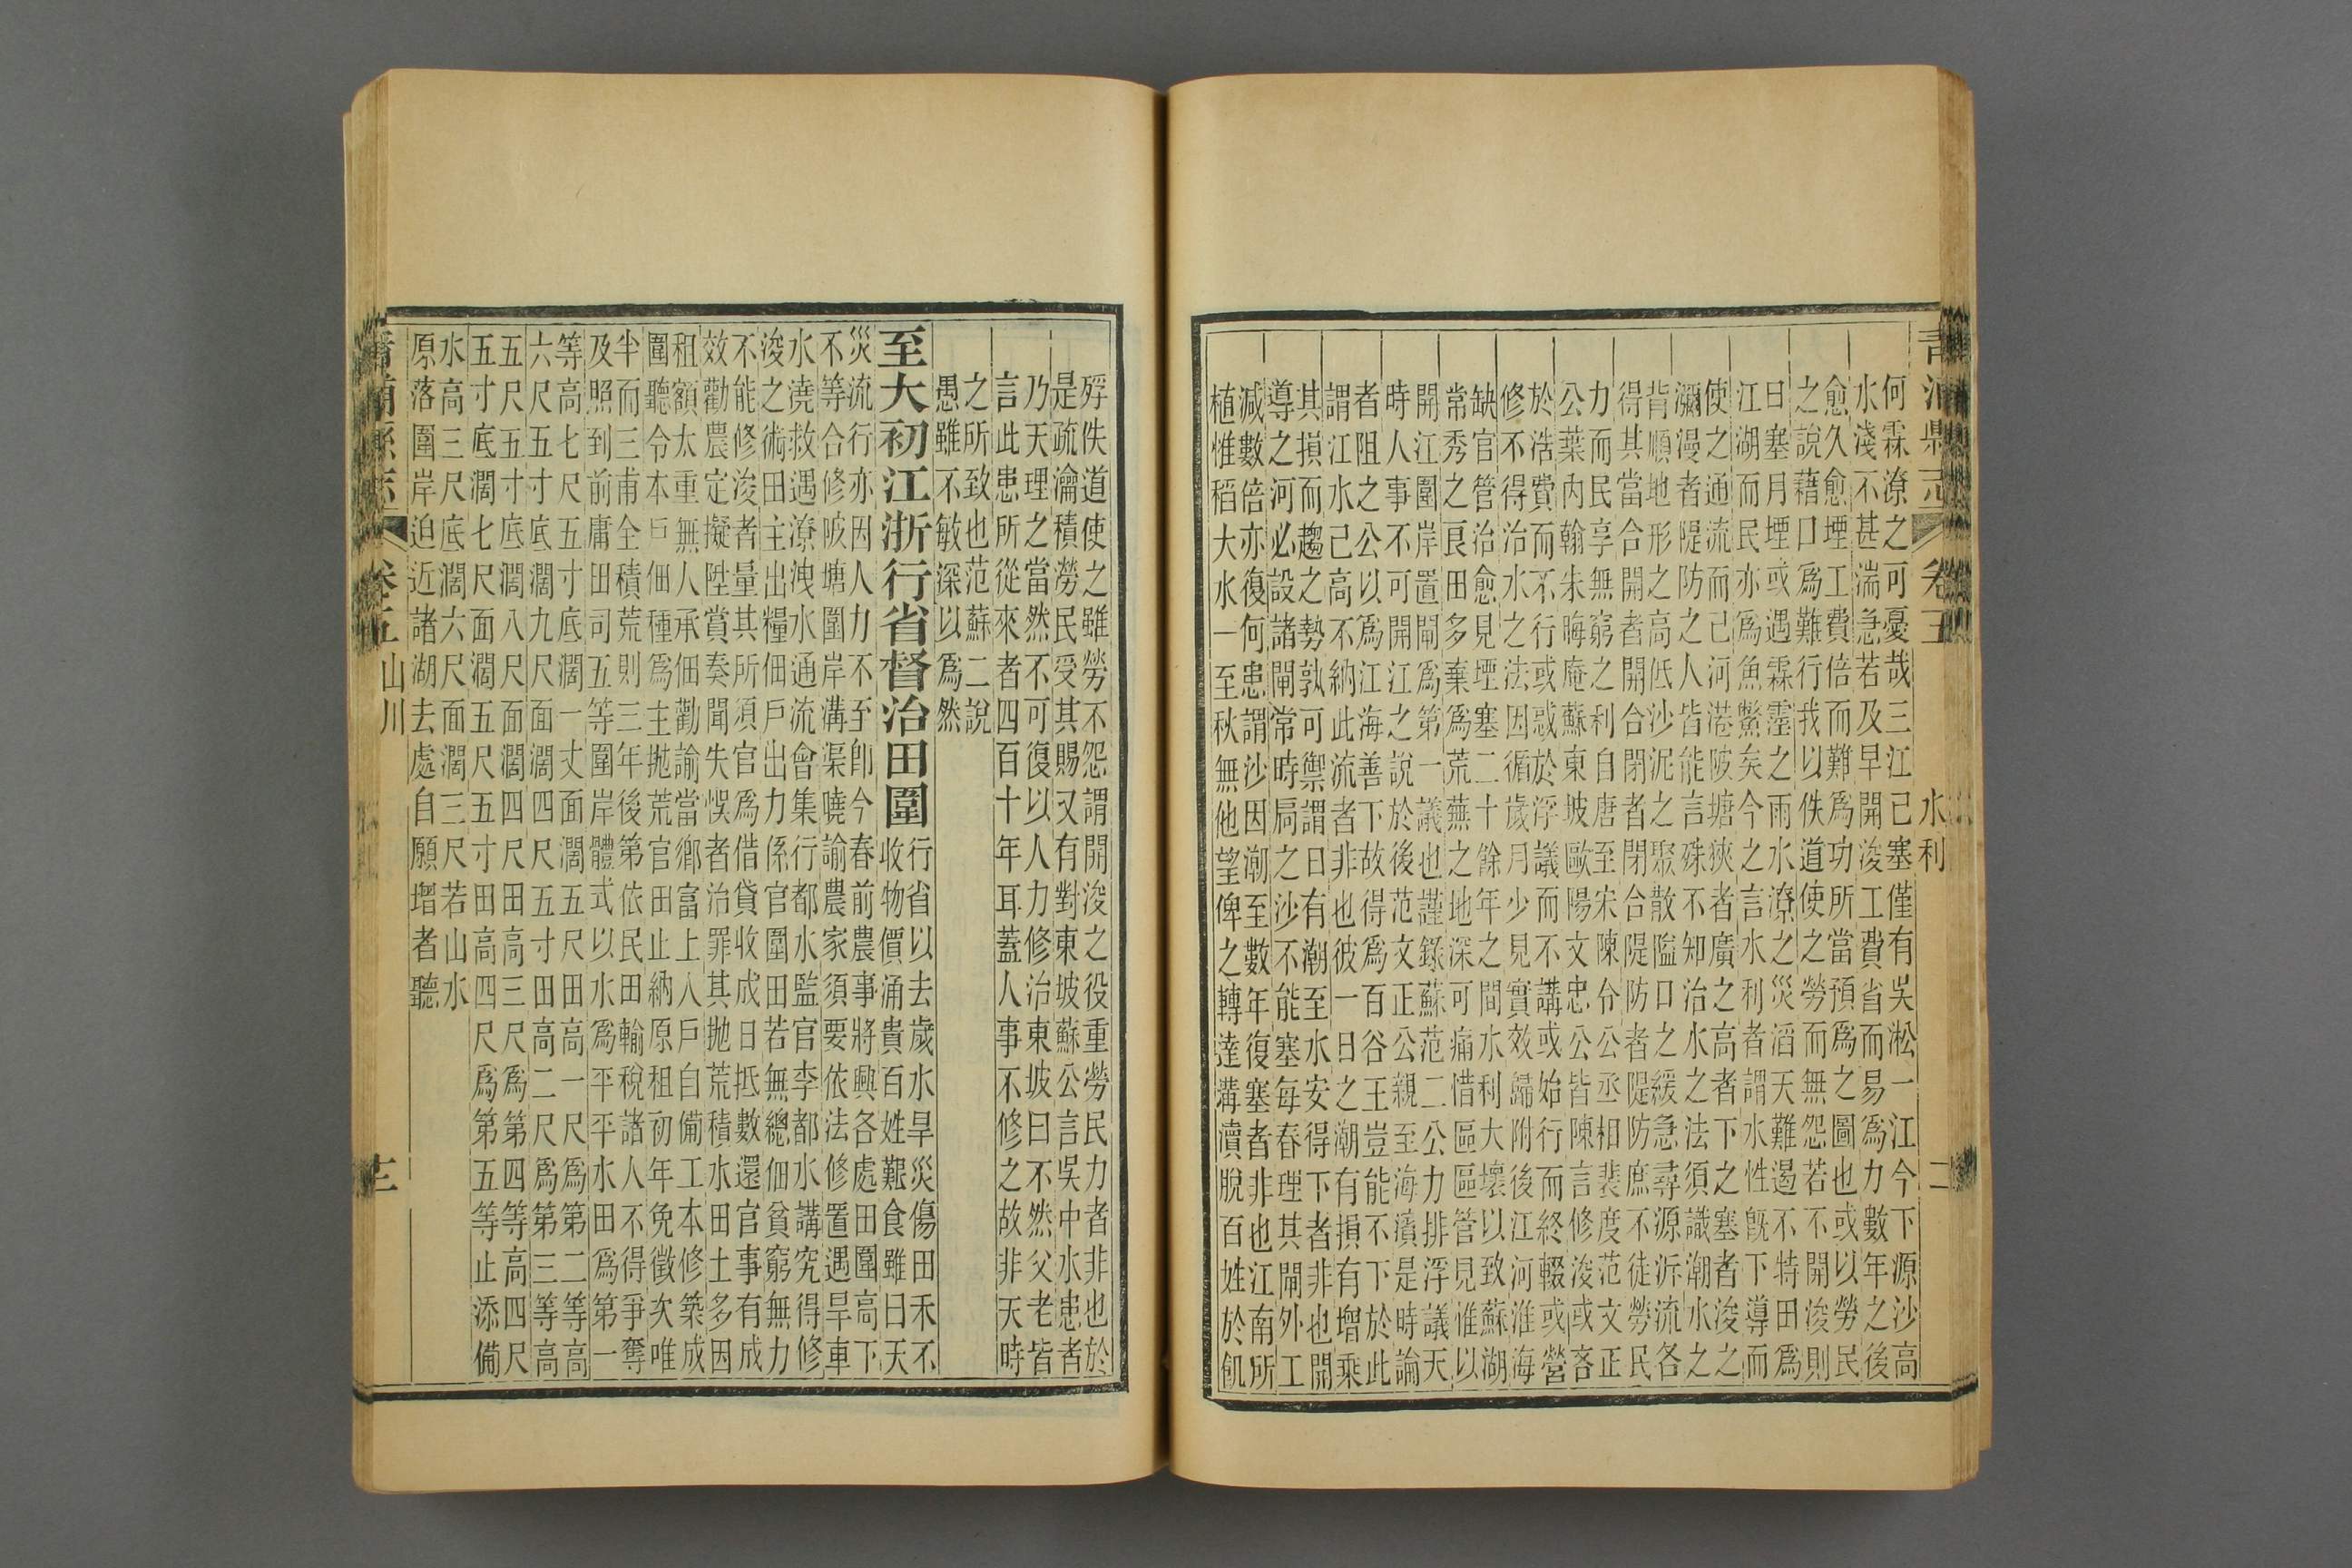 青浦縣志 卷五 水利 二
何霖潦之可憂哉三江已塞僅有吳淞一江今下源沙高
水淺不甚湍急若及早開浚工費省而易爲力數年之後
愈久愈堙工費倍而難爲功所當預爲之圖也或以勞民
之說藉口爲難行我以佚道使之勞而無怨若不開浚則
日塞月堙或遇霖霪之雨水潦之災滔天難遏不特田爲
江湖而民亦爲魚鱉矣今之言水利者謂水性旣下導而
使之通流而已河港陂塘狹者廣之高者下之塞者浚之
瀰漫者隄防之人皆能言殊不知治水之法須識潮水之
背順地形之高低沙泥之聚散隘口之緩急尋源泝流各
得其當合開者開合閉者閉合隄防者隄防庶不徒勞民
力而民享無窮之利自唐至宋陳令公丞相裴度范文正
公葉內翰朱晦庵蘇東坡歐陽文忠公皆陳言修浚或吝
於浩費而不行或惑於浮議而不講或始行而終輟或營
修不得治水之法因循歲月少見實效歸附後江河淮海
缺官管治愈見堙塞二十餘年之間水利大壞以致蘇湖
常秀之良田多棄爲荒蕪之地深可痛惜區區管見惟以
開江圍岸置閘爲第一議也謹錄蘇范二公力排浮議天
時人事不可開江之說於後范文正公親至海濱是時論
者阻之公以爲江海善下故得爲百谷王豈能不下於此
謂江水已高不納此流者非也彼一日之潮有損有增乘
其損而趨之勢孰可禦謂日有潮至水安得下者非也開
導之河必設諸閘常時扃之沙不能塞每春理其閘外工
減數倍亦復何患謂沙因潮至數年復塞者非也江南所
植惟稻大水一至秋無他望俾之轉達溝瀆脫百姓於飢
殍佚道使之雖勞不怨謂開浚之役重勞民力者非也於
是疏瀹積勞民受其賜又有對東坡蘇公言吳中水患者
乃天理之當然不可復以人力修治東坡曰不然父老皆
言此患所從來者四百十年耳蓋人事不修之故非天時
之所致也范蘇二說
愚雖不敏深以爲然
至大初江浙行省督治田圍
行省以去歲水旱災傷田禾不
收物價涌貴百姓艱食雖曰天
災流行亦因人力不至卽今春前農事將興各處田圍高下
不等合修陂塘圍岸溝渠曉諭農家須要依法修置遇旱車
水澆救遇潦洩水通流會集行都水監官李都水講究得修
浚之術田主出糧佃戶出力係官圍田若無總佃貧窮無力
不能修浚者量其所須官爲借貸收成日抵數還官事有成
效勸農定擬陞賞奏聞失悞者治罪其拋荒積水田土多因
租額太重無人承佃勸諭當鄉富上入戶自備工本修築成
圍聽令本戶佃種爲主拋荒官田止納原租初年免徵次唯
半而三甫全積荒則三年後第依民田輸稅諸人不得爭奪
及照到前庸田司五等圍岸體式以水爲平平水田爲第一
等高七尺五寸底濶一丈面濶五尺田高一尺爲第二等高
六尺五寸底濶九尺面濶四尺五寸田高二尺爲第三等高
五尺五寸底濶八尺面濶四尺田高三尺爲第四等高四尺
五寸底濶七尺面濶五尺五寸田高四尺爲第五等止添備
水高三尺底濶六尺面濶三尺若山水
原落圍岸迫近諸湖去處自願增者聽
青浦縣志 卷五 山川